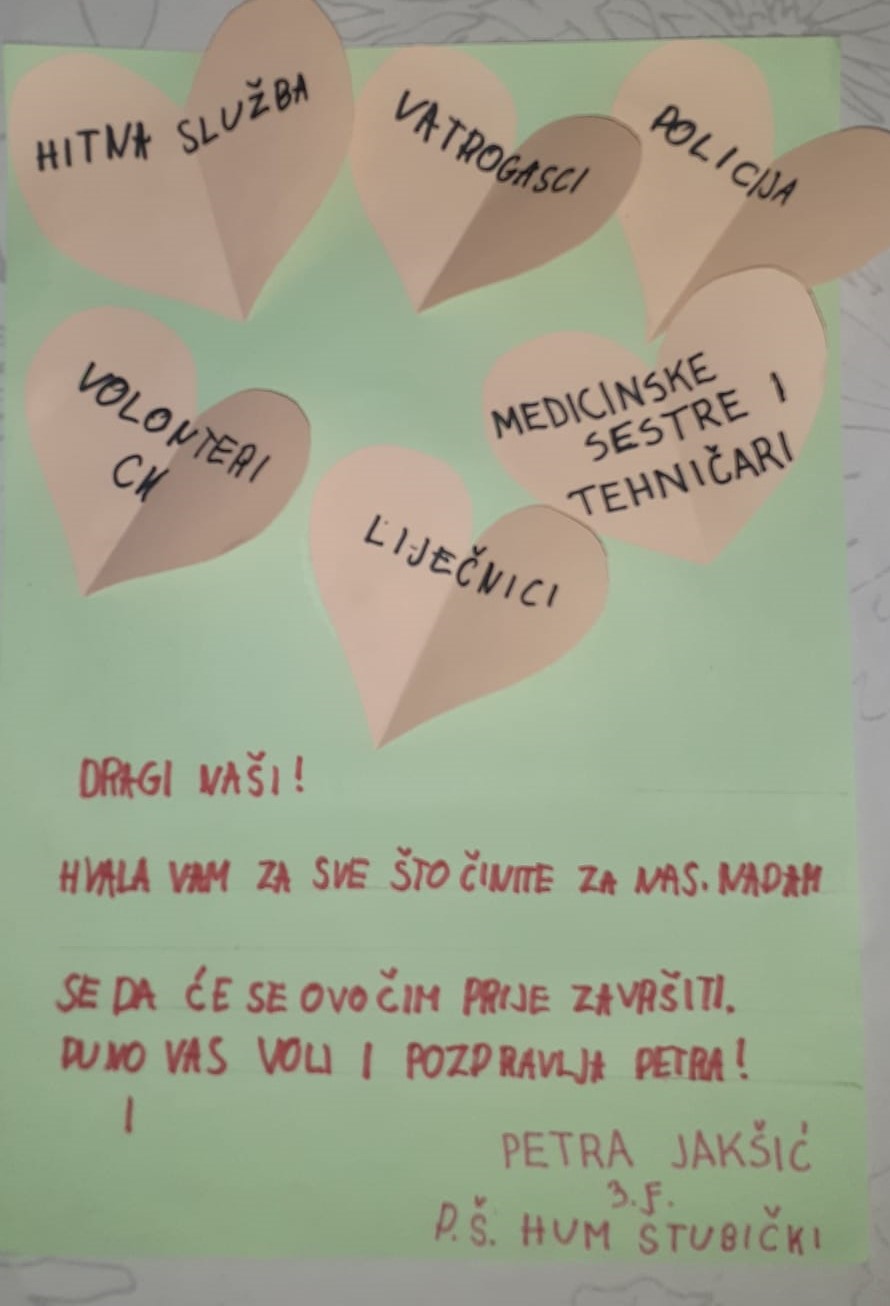 HITNA SLUŽBA
VATROGASCI
POLICIJA
VOLONTERI
CK
MEDICINSKE
SESTRE I
TEHNIČARI
LIJEČNICI
DRAGI NAŠI!
HVALA VAM ZA SVE ŠTO ČINITE ZA NAS. NADAM
SE DA ĆE SE OVO ČIM PRIJE ZAVRŠITI.
PUNO VAS VOLI I POZDRAVLJA PETRA!
I
PETRA JAKŠIĆ
3.F.
P.Š. HUM STUBIČKI